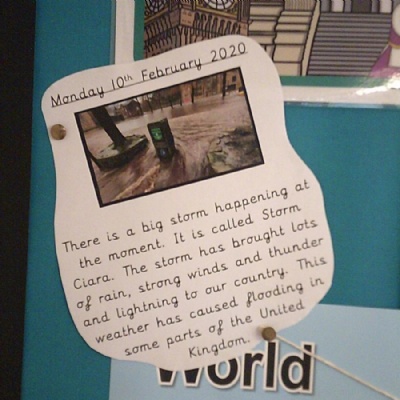 Monday 10th February 2020
There is a big storm happening at
the moment. It is called Storm
Ciara. The storm has brought lots
of rain, strong winds and thunder
and lightning to our country. This
weather has caused flooding in
some parts of the United
Kingdom.
World